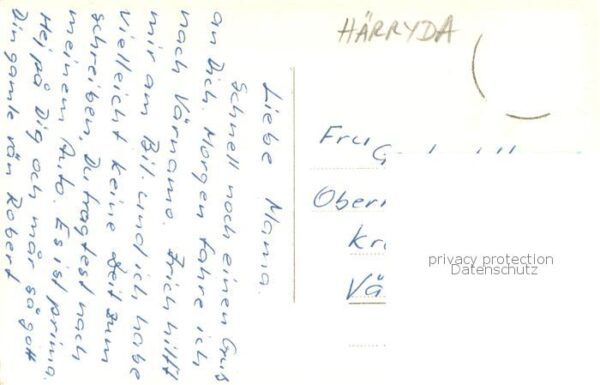 HÄRRYDA
Liebe Mama.
Schnell noch einen Gruß
an Dich. Morgen fahre ich
nach Värnamo. Erich hilft
mir am Bil. und ich habe
vielleicht keine Zeit zum
schreiben. Du fragtest nach
meinem Auto. Es ist prima.
Hej på Dig och mår så gott
Din gamle vän Robert
Fru
Ober
Kr
Vä
privacy protection
Datenschutz